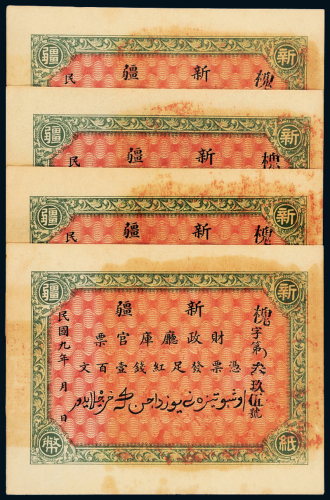 新疆
新疆
槐
民
新疆
新疆
槐
民
新疆
新疆
槐
民
新疆
新疆
財政廳庫官票
憑票發足紅錢壹百文
槐字第玖伍號
民國九年 月 日
紙幣